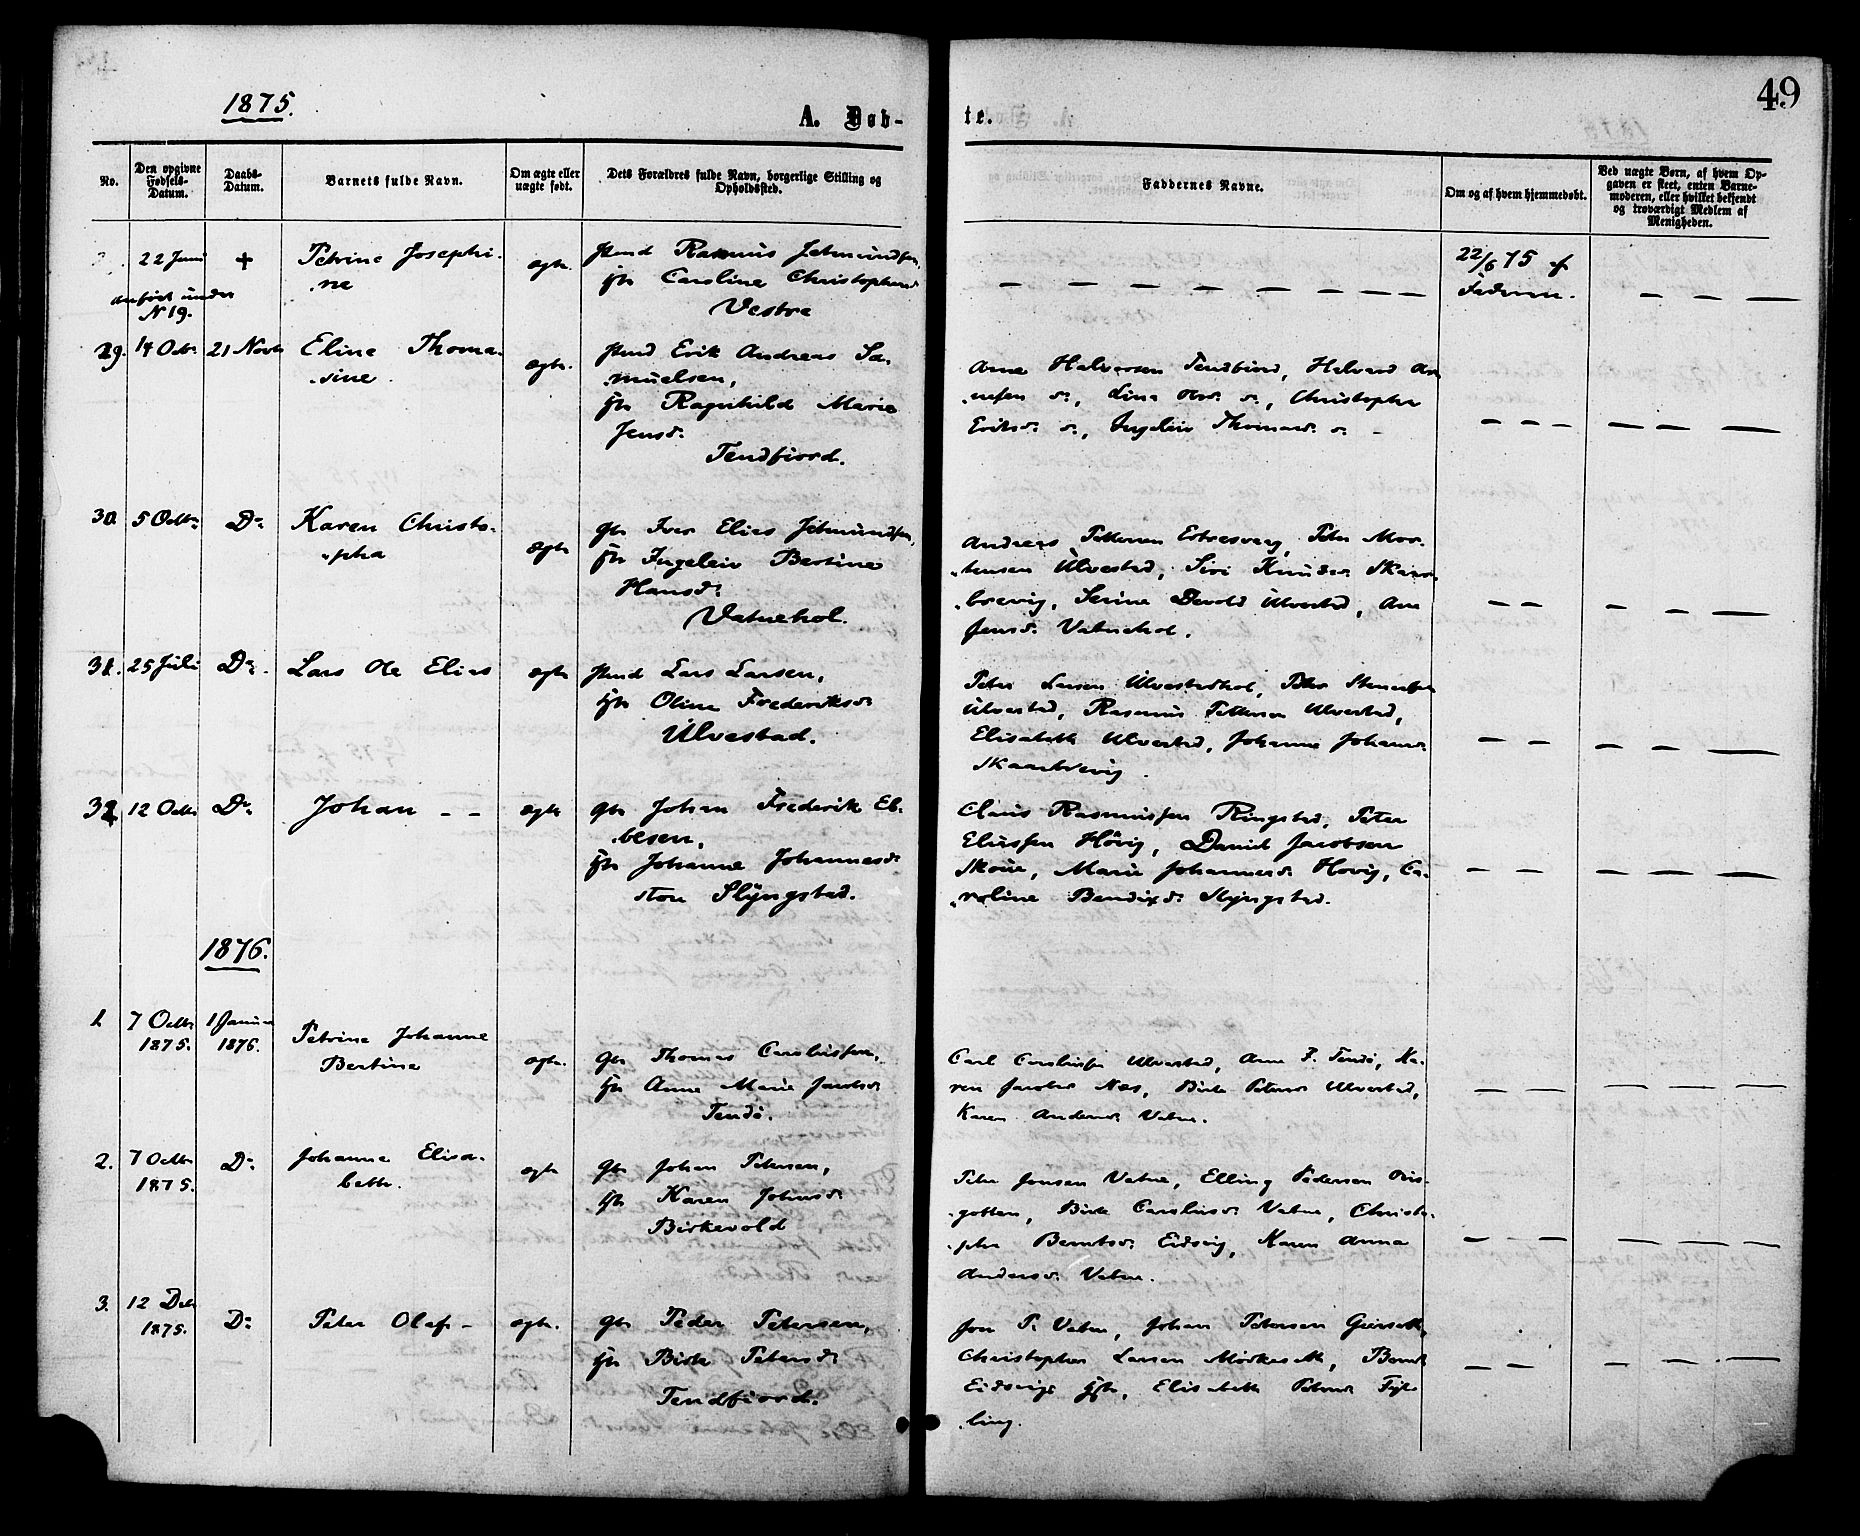 1875.
A. Døb-
te.
49
No.
Den opgivne Fødsels-Datum.
Daabs-Datum.
Barnets fulde Navn.
Om ægte eller uægte født.
Dets Forældres fulde Navn, borgerlige Stilling og Opholdssted.
Faddernes Navne.
Om og af hvem hjemmedøbt.
Ved uægte Børn, af hvem Opgaven er skeet, enten Barnemoderen, eller hvilket bekjendt og troværdigt Medlem af Menigheden.
22 Juni
+
Petrine Josephi-
ne
anført under
N 19.
ægte.
Rasmus Jetmundsen,
Caroline Christophersd
Vestre
22/6 75 af
Faderen.
29.
14 Octr
21 Novb
Eline Thoma-
sine
ægte.
Erik Andreas Sa-
muelsen,
Ragnhild Marie
Jensd:
Tendfiord.
Arne Halvorsen Tendfiord, Halvard Ar-
nesen
Christopha
Eriksd: Ingeleiv Thomasd:
30
5 Octbr
Do
Karen Christo-
pha
ægte
Iver Elias Jetmundsen,
Ingeleiv Bertine
Hansd:
Vatnehol.
Andreas Pettersen Peter Mor-
tensen Ulvestad, Siri Knudsd: Skaar-
brevig, Serine Devold Ulvestad, Ane
Jensd: Vatnehol.
31.
25 Juli
Do
Lars Ole Elias
ægte
Lars Larsen,
Oline Frederiksd:
Ulvestad.
Peter Larsen Ulvestadhol,
Ulvestad, Rasmus Petterson Ulvestad,
Elisabeth Ulvestad, Johanne Johansd:
Skaarbrevig.
32
12 Octb
Do
Johan - -
ægte
Gbr Johan Frederik Eb-
besen,
Johanne Johannesd:
Slyngstad.
Claus Rasmussen Ringstad, Peter
Eliassen Hövig, Daniel Jacobsen
Skoue, Marie Johannesd: Hovig, Ca-
roline Bendixd: Slyngstad.
1876.
1.
7 Octbr
1875.
1 Januar
1876.
Petrine Johanne
Bertine
ægte.
Gbr Thomas Carolussen,
Anne Marie Jacobsd:
Tendö.
Carl Carolussen Ulvestad, Ane P. Tendö, Ka-
ren Jacobsd Næs, Birte Petersd Ulvestad,
Karen Andersd: Vatne.
2.
7 Octbr
1875.
Do
Johanne Elisa-
beth.
ægte
Gbr Johan Petersen,
Karen Johnsd:
Birkevold
Peter Jonsen Vatne, Elling Pedersen
Birte Carolusd: Vatne, Christo-
pha Berntsd: Eidsvig, Karen Anna
Andersd: Vatne.
3.
12 Decb
1875.
Do
Peter Olaf -
ægte.
Gbr Peder Petersen,
Birte Petersd:
Tendfiord.
Jon P. Vatne, Johan Petersen Gjerseth,
Christopher Larsen Mörkeseth, Bernt
Eidsvigs Elisabeth Petersd: Fyl-
ling.